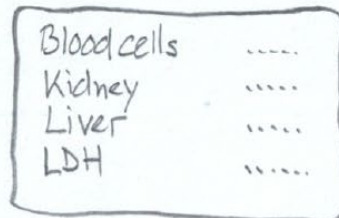 Blood cells .....
Kidney .....
Liver .....
LDH ......